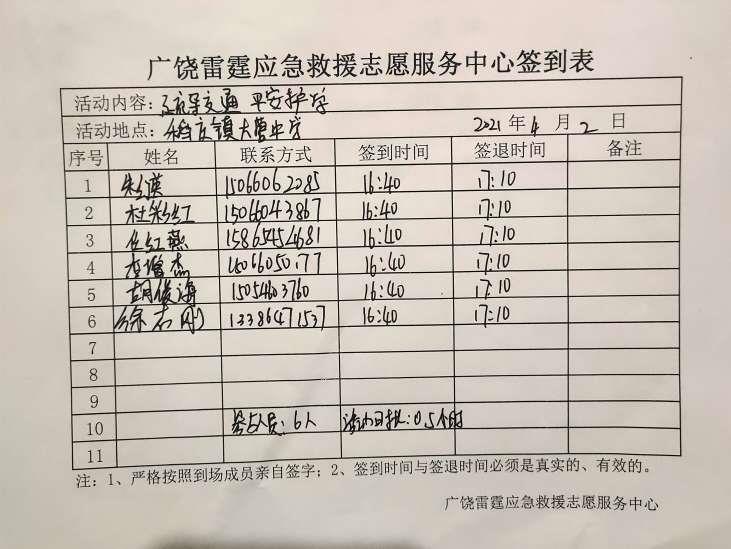 广饶雷霆应急救援志愿服务中心签到表
活动内容：疏导交通 平安护学
活动地点：稻庄镇大营中学 2021年4月2日
序号 姓名 联系方式 签到时间 签退时间 备注
1 15066062285 16:40 17:10
2 杜彩红 15066043867 16:40 17:10
3 任红燕 15865454681 16:40 17:10
4 李增杰 16:40 17:10
5 胡俊海 16:40 17:10
6 徐志刚 13386471537 16:40 17:10
7
8
9
10 参与人员：6人 0.5个时
11
注：1、严格按照到场成员亲自签字；2、签到时间与签退时间必须是真实的、有效的。
广饶雷霆应急救援志愿服务中心